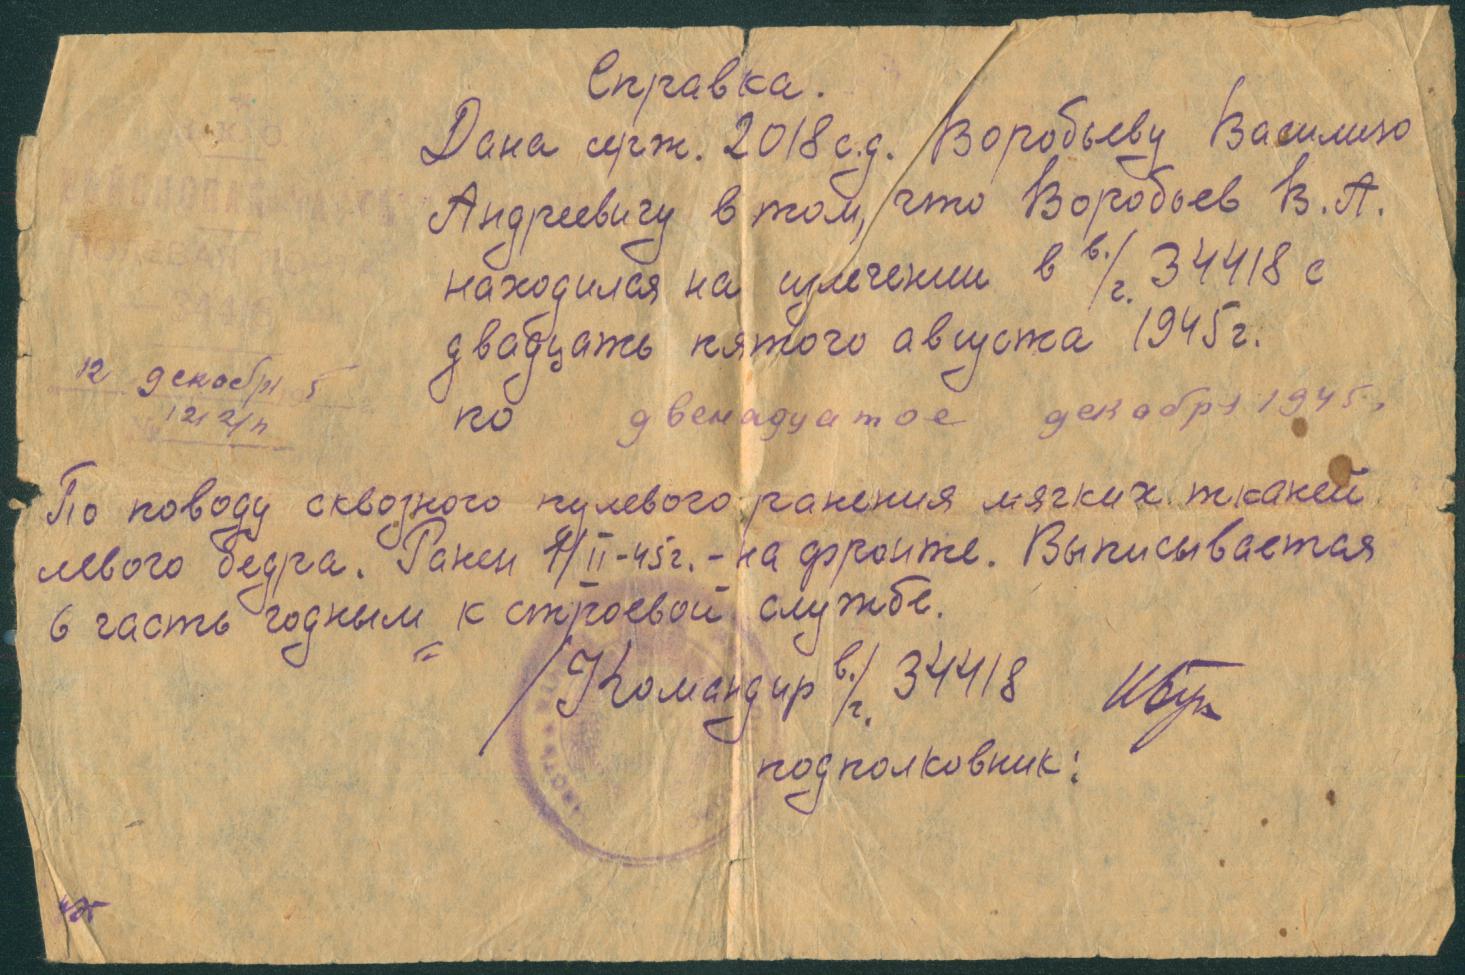 Справка.
Дана серж. 2018 с.д. Воробьеву Василию
Андреевичу в том, что Воробьев В. А.
находился на излечении в в./ч. 34418 с
двадцать пятого августа 1945г.
по двенадцатое декабря 1945г.
34418
12 декабря 5
По поводу сквозного пулевого ранения мягких тканей
левого бедра. Ранен /II-45г. - на фронте. Выписывается
в часть годным к строевой службе.
/Командир в./ч. 34418
подполковник: